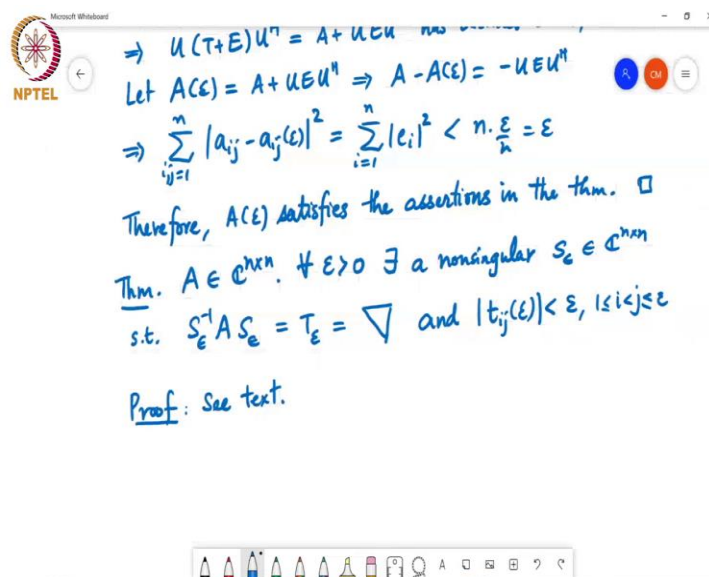 Microsoft Whiteboard
⇒ U(T+E)Uᴴ = A + UEUᴴ has
Let A(ε) = A + UEUᴴ ⇒ A - A(ε) = -UEUᴴ
NPTEL
CM
⇒ ∑_{i,j=1}^{n} |a_{ij} - a_{ij}(ε)|² = ∑_{i=1}^{n} |e_i|² < n·ε/n = ε
Therefore, A(ε) satisfies the assertions in the thm. □
Thm. A ∈ ℂ^{n×n}. ∀ ε>0 ∃ a nonsingular S_ε ∈ ℂ^{n×n}
s.t. S_ε^{-1} A S_ε = T_ε = ▽ and |t_{ij}(ε)| < ε, 1≤i<j≤ε
Proof: See text.